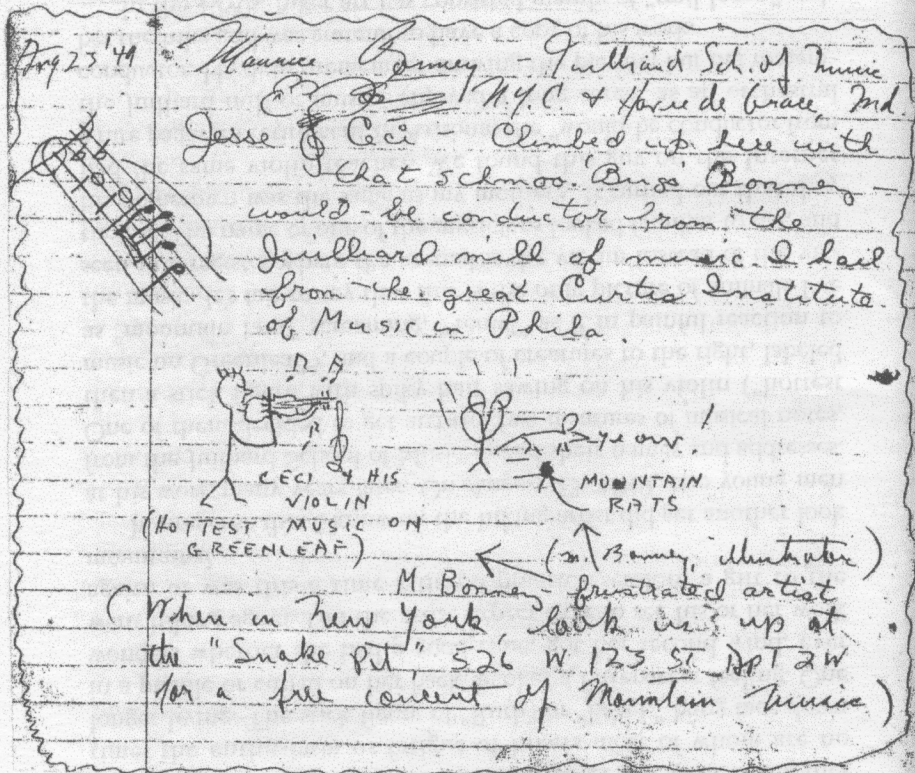 Aug 23 '49 Maurice Bonney Juilliard Sch. of Music
N.Y.C. & Havre de Grace, Md
Jesse Ceci Climbed up here with
that schmoo "Buss" Bonney
would be conductor from the
Juilliard mill of music. I hail
from the great Curtis Institute
of Music in Phila.
CECI & HIS
VIOLIN
(HOTTEST MUSIC ON
GREENLEAF)
yeow
MOUNTAIN
RATS
(M. Bonney, illustrator)
M. Bonney, frustrated artist
(When in New York look us up at
the "Snake Pit" 526 W. 123 ST Apt 2W
for a free concert of Mountain Music)